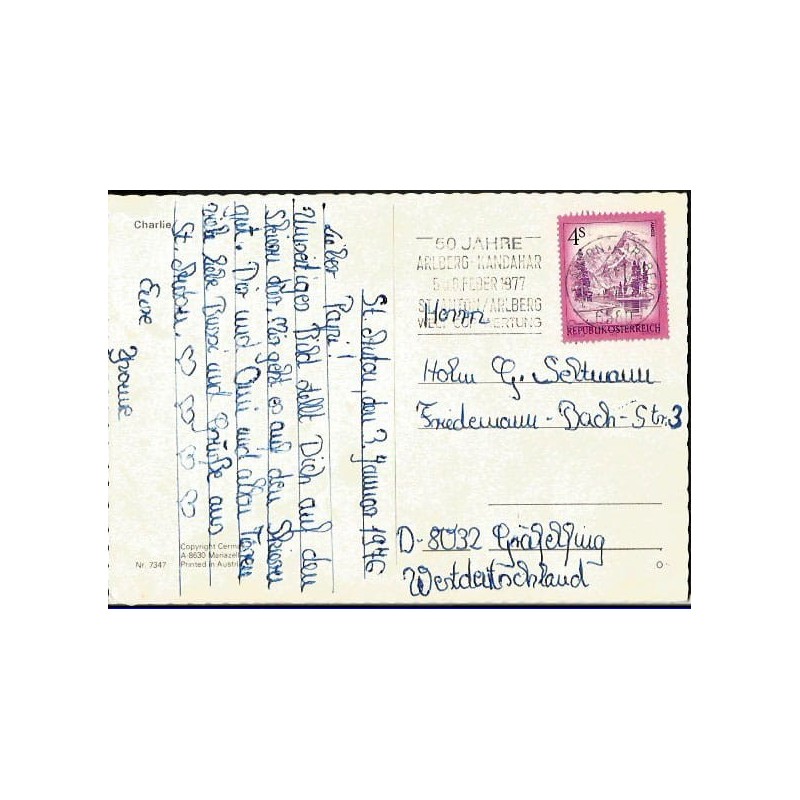 Charlie
St. Anton, den 3. Januar 1976
Lieber Papi!
Umseitiges Bild stellt Dich auf den
Skiern dar. Mir geht es auf den Skiern
gut. Dir und Omi und allen Tieren
viele liebe Bussi und Grüße aus
St. Anton. ♡ ♡ ♡ ♡ ♡
Eure
50 JAHRE
ARLBERG-KANDAHAR
FEBER 1977
ST. ANTON/ARLBERG
WELTCUPWERTUNG
4 S
REPUBLIK ÖSTERREICH
Herrn
Holm G. Seltmann
Friedemann-Bach-Str. 3
D-8032 Gräfelfing
Westdeutschland
Copyright
A-8630 Mariazell
Nr. 7347 Printed in Austri